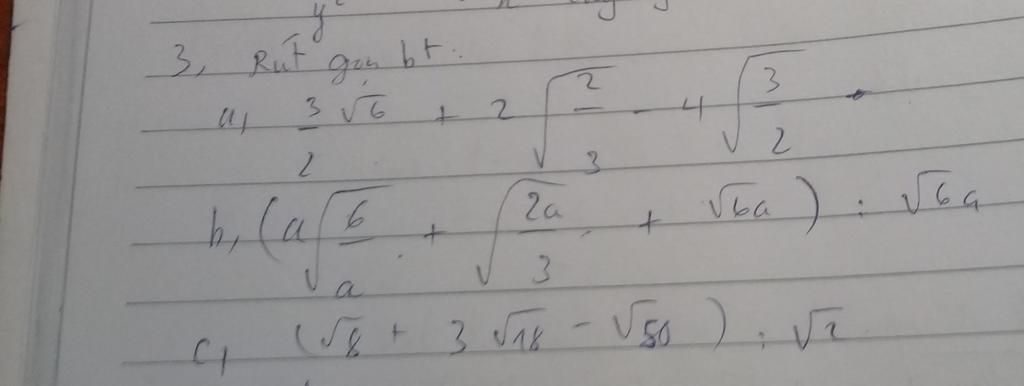 3, Rút gọn bt:
a, 3/2 √6 + 2 √(2/3) - 4 √(3/2)
b, (a √(6/a) + √(2a/3) + √6a) : √6a
c, (√8 + 3 √18 - √50) : √2